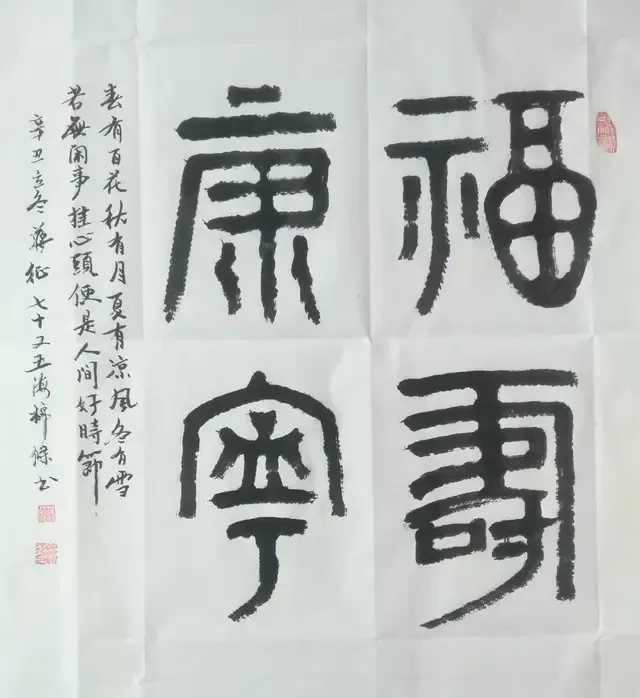 福壽
康寧
春有百花秋有月夏有凉風冬有雪
若無閑事挂心頭便是人間好時節
辛丑立冬蔣征七十又五海書